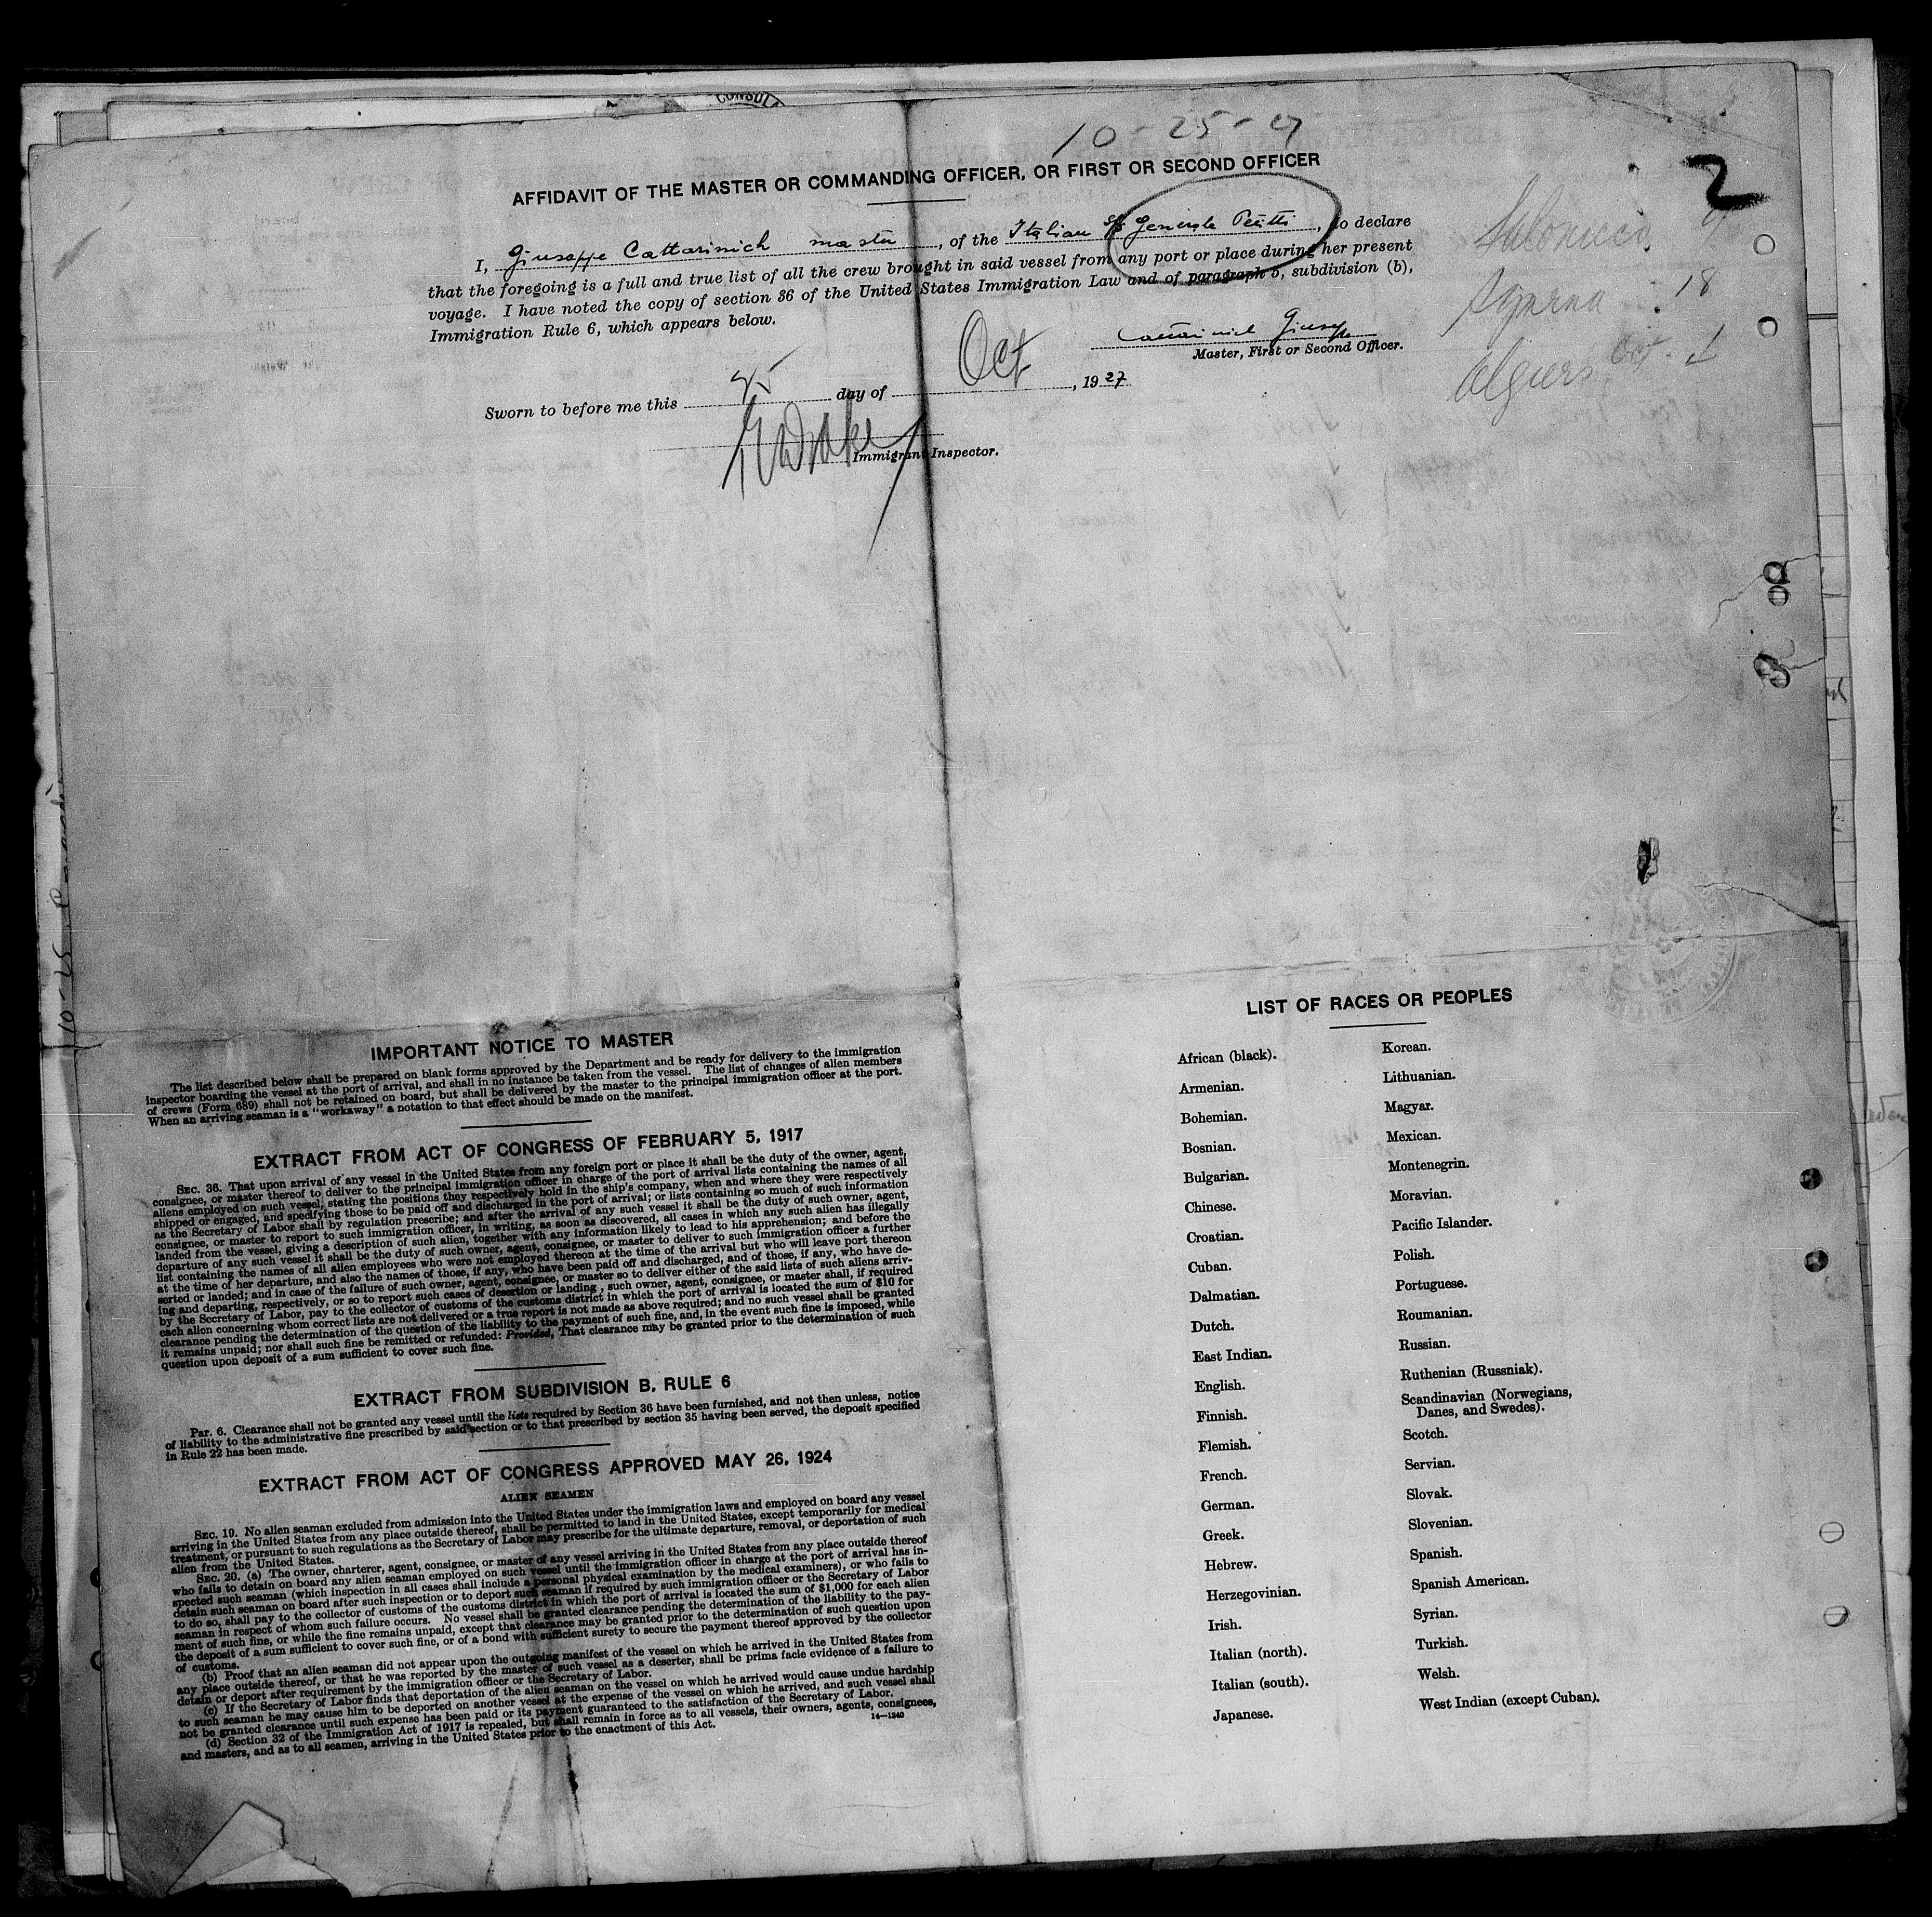 10-25-27
2
AFFIDAVIT OF THE MASTER OR COMMANDING OFFICER, OR FIRST OR SECOND OFFICER
I, Giuseppe Cattarinich master, of the Italian S/s Generale Petitti, do declare
that the foregoing is a full and true list of all the crew brought in said vessel from any port or place during her present
voyage. I have noted the copy of section 36 of the United States Immigration Law and of paragraph 5, subdivision (b),
Immigration Rule 6, which appears below.
Giusep
Master, First or Second Officer.
Sworn to before me this 25 day of Oct, 1927
Immigrant Inspector.
Salonicco
Smyrna 18
Algiers Oct.
IMPORTANT NOTICE TO MASTER
The list described below shall be prepared on blank forms approved by the Department and be ready for delivery to the immigration
inspector boarding the vessel at the port of arrival, and shall in no instance be taken from the vessel. The list of changes of alien members
of crews (Form 689) shall not be retained on board, but shall be delivered by the master to the principal immigration officer at the port.
When an arriving seaman is a "workaway" a notation to that effect should be made on the manifest.
EXTRACT FROM ACT OF CONGRESS OF FEBRUARY 5, 1917
SEC. 36. That upon arrival of any vessel in the United States from any foreign port or place it shall be the duty of the owner, agent,
consignee, or master thereof to deliver to the principal immigration officer in charge of the port of arrival lists containing the names of all
aliens employed on such vessel, stating the positions they respectively hold in the ship's company, when and where they were respectively
shipped or engaged, and specifying those to be paid off and discharged in the port of arrival; or lists containing so much of such information
as the Secretary of Labor shall by regulation prescribe; and after the arrival of any such vessel it shall be the duty of such owner, agent,
consignee, or master to report to such immigration officer, in writing, as soon as discovered, all cases in which any such alien has illegally
landed from the vessel, giving a description of such alien, together with any information likely to lead to his apprehension; and before the
departure of any such vessel it shall be the duty of such owner, agent, consignee, or master to deliver to such immigration officer a further
list containing the names of all alien employees who were not employed thereon at the time of the arrival but who will leave port thereon
at the time of her departure, and also the names of those, if any, who have been paid off and discharged, and of those, if any, who have de-
serted or landed; and in case of the failure of such owner, agent, consignee, or master so to deliver either of the said lists of such aliens arriv-
ing and departing, respectively, or so to report such cases of desertion or landing, such owner, agent, consignee, or master shall, if required
by the Secretary of Labor, pay to the collector of customs of the customs district in which the port of arrival is located the sum of $10 for
each alien concerning whom correct lists are not delivered or a true report is not made as above required; and no such vessel shall be granted
clearance pending the determination of the question of the liability to the payment of such fine, and, in the event such fine is imposed, while
it remains unpaid; nor shall such fine be remitted or refunded: Provided, That clearance may be granted prior to the determination of such
question upon deposit of a sum sufficient to cover such fine.
EXTRACT FROM SUBDIVISION B, RULE 6
Par. 6. Clearance shall not be granted any vessel until the lists required by Section 36 have been furnished, and not then unless, notice
of liability to the administrative fine prescribed by said section or to that prescribed by section 35 having been served, the deposit specified
in Rule 22 has been made.
EXTRACT FROM ACT OF CONGRESS APPROVED MAY 26, 1924
ALIEN SEAMEN
SEC. 19. No alien seaman excluded from admission into the United States under the immigration laws and employed on board any vessel
arriving in the United States from any place outside thereof, shall be permitted to land in the United States, except temporarily for medical
treatment, or pursuant to such regulations as the Secretary of Labor may prescribe for the ultimate departure, removal, or deportation of such
alien from the United States.
SEC. 20. (a) The owner, charterer, agent, consignee, or master of any vessel arriving in the United States from any place outside thereof
who fails to detain on board any alien seaman employed on such vessel until the immigration officer in charge at the port of arrival has in-
spected such seaman (which inspection in all cases shall include a personal physical examination by the medical examiners), or who fails to
detain such seaman on board after such inspection or to deport such seaman if required by such immigration officer or the Secretary of Labor
to do so, shall pay to the collector of customs of the customs district in which the port of arrival is located the sum of $1,000 for each alien
seaman in respect of whom such failure occurs. No vessel shall be granted clearance pending the determination of the liability to the pay-
ment of such fine, or while the fine remains unpaid, except that clearance may be granted prior to the determination of such question upon
the deposit of a sum sufficient to cover such fine, or of a bond with sufficient surety to secure the payment thereof approved by the collector
of customs.
(b) Proof that an alien seaman did not appear upon the outgoing manifest of the vessel on which he arrived in the United States from
any place outside thereof, or that he was reported by the master of such vessel as a deserter, shall be prima facie evidence of a failure to
detain or deport after requirement by the immigration officer or the Secretary of Labor.
(c) If the Secretary of Labor finds that deportation of the alien seaman on the vessel on which he arrived would cause undue hardship
to such seaman he may cause him to be deported on another vessel at the expense of the vessel on which he arrived, and such vessel shall
not be granted clearance until such expense has been paid or its payment guaranteed to the satisfaction of the Secretary of Labor.
(d) Section 32 of the Immigration Act of 1917 is repealed, but shall remain in force as to all vessels, their owners, agents, consignees,
and masters, and as to all seamen, arriving in the United States prior to the enactment of this Act.
14—1240
LIST OF RACES OR PEOPLES
African (black).
Armenian.
Bohemian.
Bosnian.
Bulgarian.
Chinese.
Croatian.
Cuban.
Dalmatian.
Dutch.
East Indian.
English.
Finnish.
Flemish.
French.
German.
Greek.
Hebrew.
Herzegovinian.
Irish.
Italian (north).
Italian (south).
Japanese.
Korean.
Lithuanian.
Magyar.
Mexican.
Montenegrin.
Moravian.
Pacific Islander.
Polish.
Portuguese.
Roumanian.
Russian.
Ruthenian (Russniak).
Scandinavian (Norwegians,
Danes, and Swedes).
Scotch.
Servian.
Slovak.
Slovenian.
Spanish.
Spanish American.
Syrian.
Turkish.
Welsh.
West Indian (except Cuban).